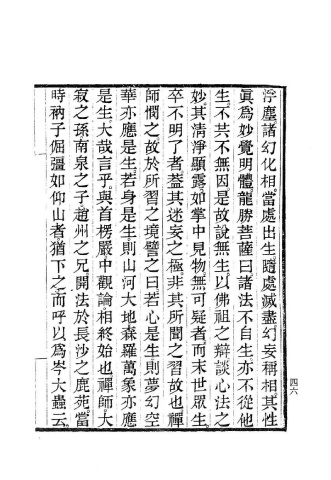 浮塵諸幻化相當處出生隨處滅盡幻妄稱相其性
眞爲妙覺明體龍勝菩薩曰諸法不自生亦不從他
生不共不無因是故說無生以佛祖之辯談心法之
妙其清淨顯露如掌中見物無可疑者而末世眾生
卒不明了者蓋其迷妄之極非其所聞之習故也禪
師憫之故於所習之境譬之曰若心是生則夢幻空
華亦應是生若身是生則山河大地森羅萬象亦應
是生大哉言乎與首楞嚴中觀論相終始也禪師大
寂之孫南泉之子趙州之兄開法於長沙之鹿苑當
時衲子倔彊如仰山者猶下之而呼以爲岑大蟲云
四六